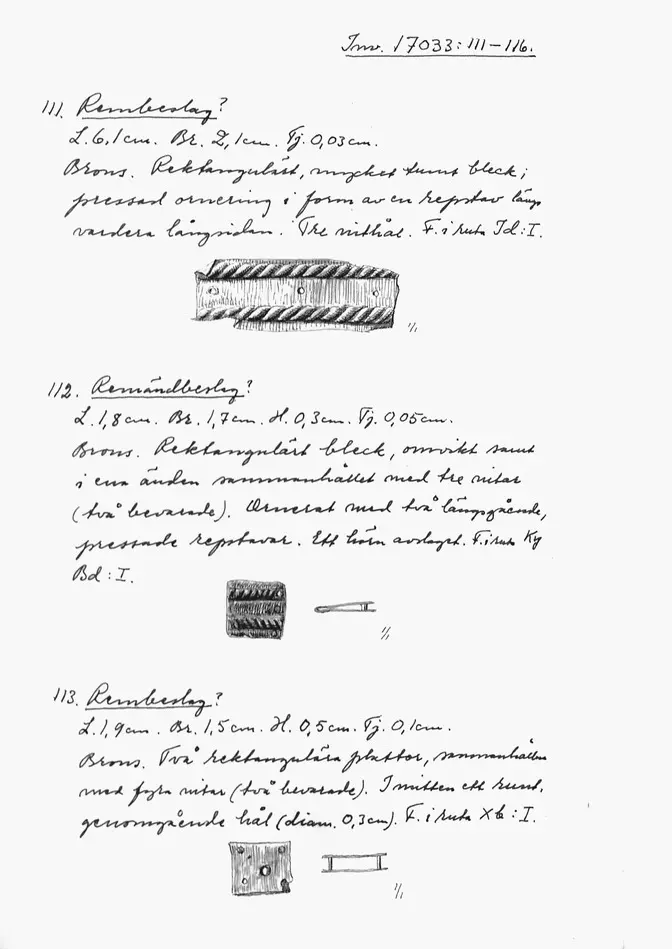 Inv. 17033:111–116.
111. Rembeslag?
L. 6,1cm. Br. 2,1cm. Tj. 0,03cm.
Brons. Rektangulärt, mycket tunt bleck;
pressad ornering i form av en repstav längs
vardera långsidan. Tre nithål. F. i ruta Id:I.
1/1
112. Remändbeslag?
L. 1,8cm. Br. 1,7cm. H. 0,3cm. Tj. 0,05cm.
Brons. Rektangulärt bleck, omvikt samt
i ena änden sammanhållet med tre nitar
(två bevarade). Ornerat med två längsgående,
pressade repstavar. Ett hörn avslaget. F. i ruta Ky
Bd:I.
1/1
113. Rembeslag?
L. 1,9cm. Br. 1,5cm. H. 0,5cm. Tj. 0,1cm.
Brons. Två rektangulära plattor, sammanhållen
med fyra nitar (två bevarade). I mitten ett runt,
genomgående hål (diam. 0,3cm). F. i ruta Xb:I.
1/1